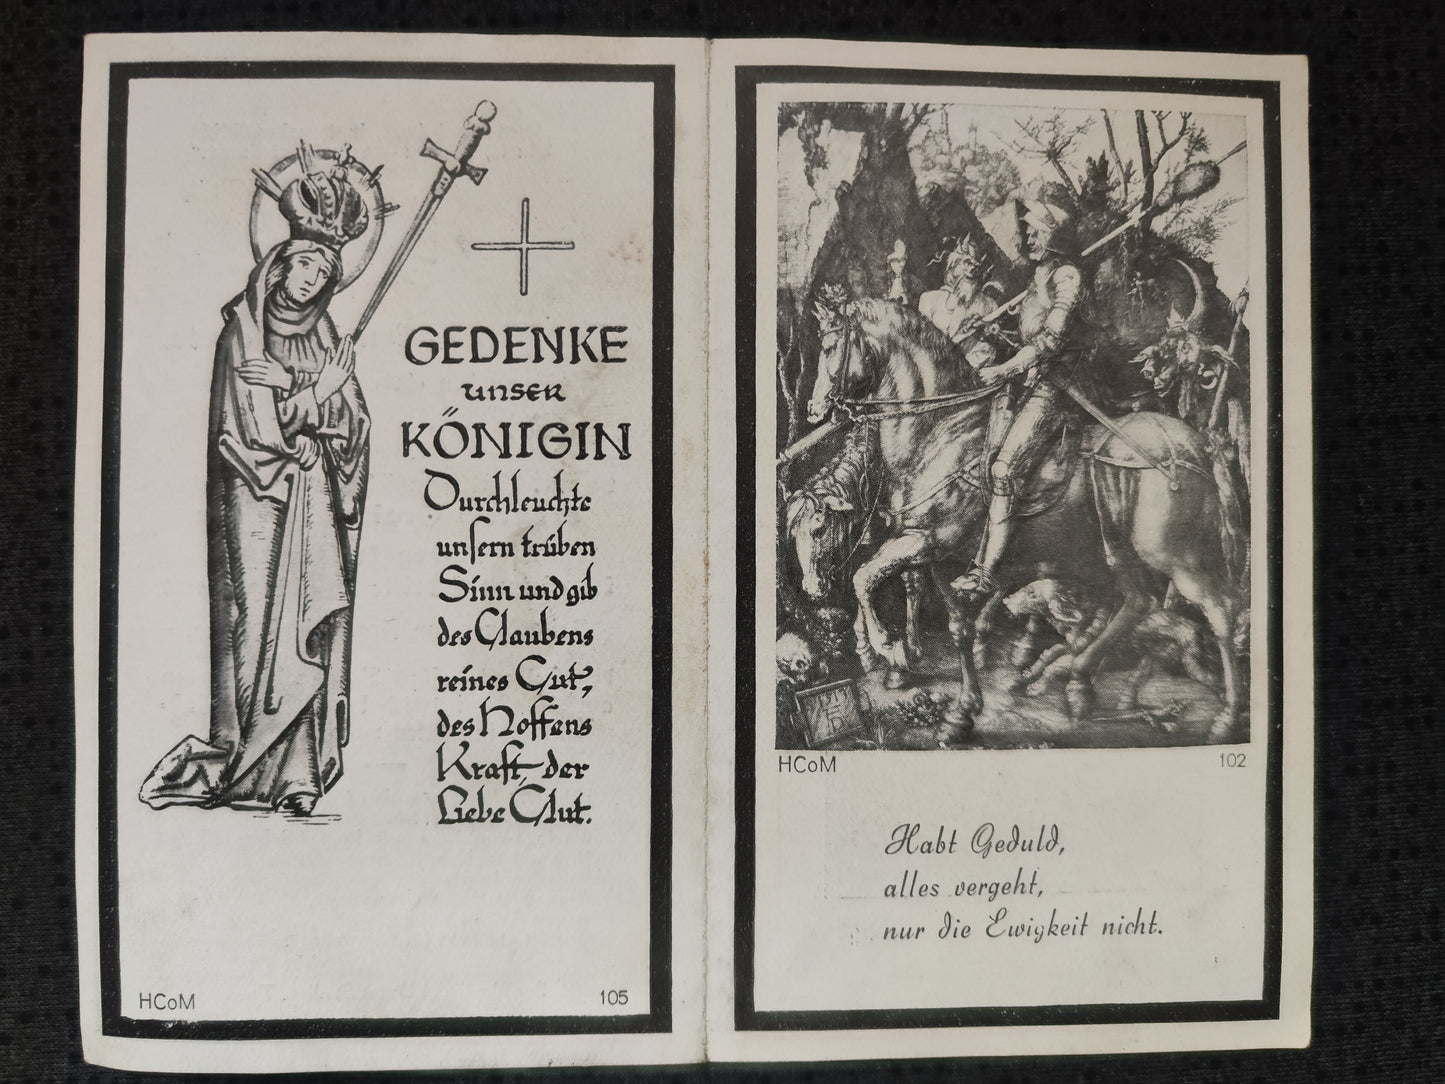 GEDENKE
unser
KÖNIGIN
Durchleuchte
unsern trüben
Sinn und gib
des Glaubens
reines Gut,
des Hoffens
Kraft, der
Liebe Glut.
HCoM 105
1513
AD
HCoM 102
Habt Geduld,
alles vergeht,
nur die Ewigkeit nicht.